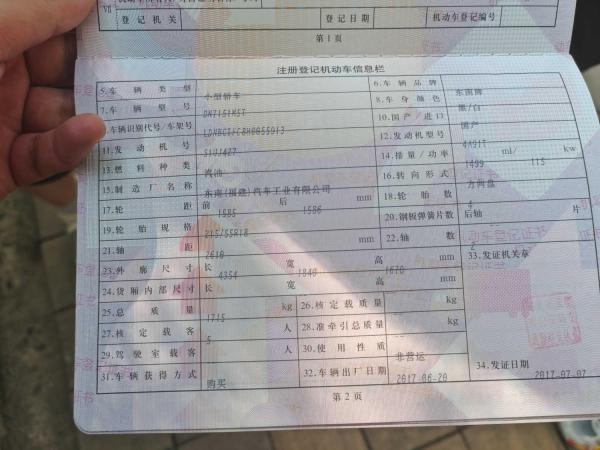 VII
登记机关 登记日期 机动车登记编号
第1页
注册登记机动车信息栏
5.车辆类型 小型轿车 6.车辆品牌 东南牌
7.车辆型号 8.车身颜色 黑/白
车辆识别代号/车架号 10.国产/进口 国产
11.发动机号 12.发动机型号 4A91T
13.燃料种类 汽油 14.排量/功率 1499 ml/ 115 kw
15.制造厂名称 东南(福建)汽车工业有限公司 16.转向形式 方向盘
17.轮距 前 1585 后 1586 mm 18.轮胎数 4
19.轮胎规格 215/55R18 20.钢板弹簧片数 后轴 片
21.轴距 2610 mm 22.轴数 2
23.外廓尺寸 长 4354 宽 1840 高 1670 mm 33.发证机关章
24.货厢内部尺寸 长 宽 高 mm
25.总质量 1715 kg 26.核定载质量 kg
27.核定载客 5 人 28.准牵引总质量 kg
29.驾驶室载客 人 30.使用性质 非营运
31.车辆获得方式 购买 32.车辆出厂日期 2017-06-20 34.发证日期 2017-07-07
第2页